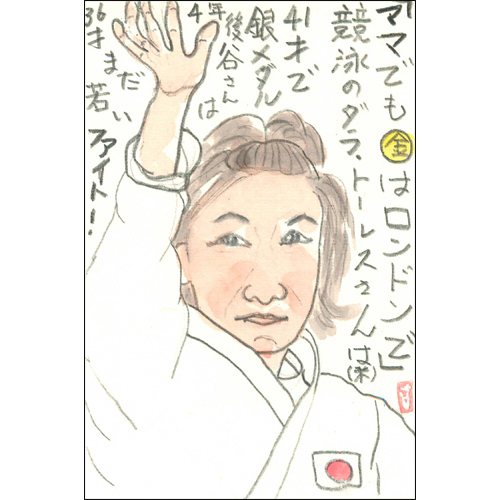 「ママでも金はロンドンで」
競泳のダラ、トーレスさんは(米)
41才で
銀メダル
4年後谷さんは
36才まだ若い
ファイト!